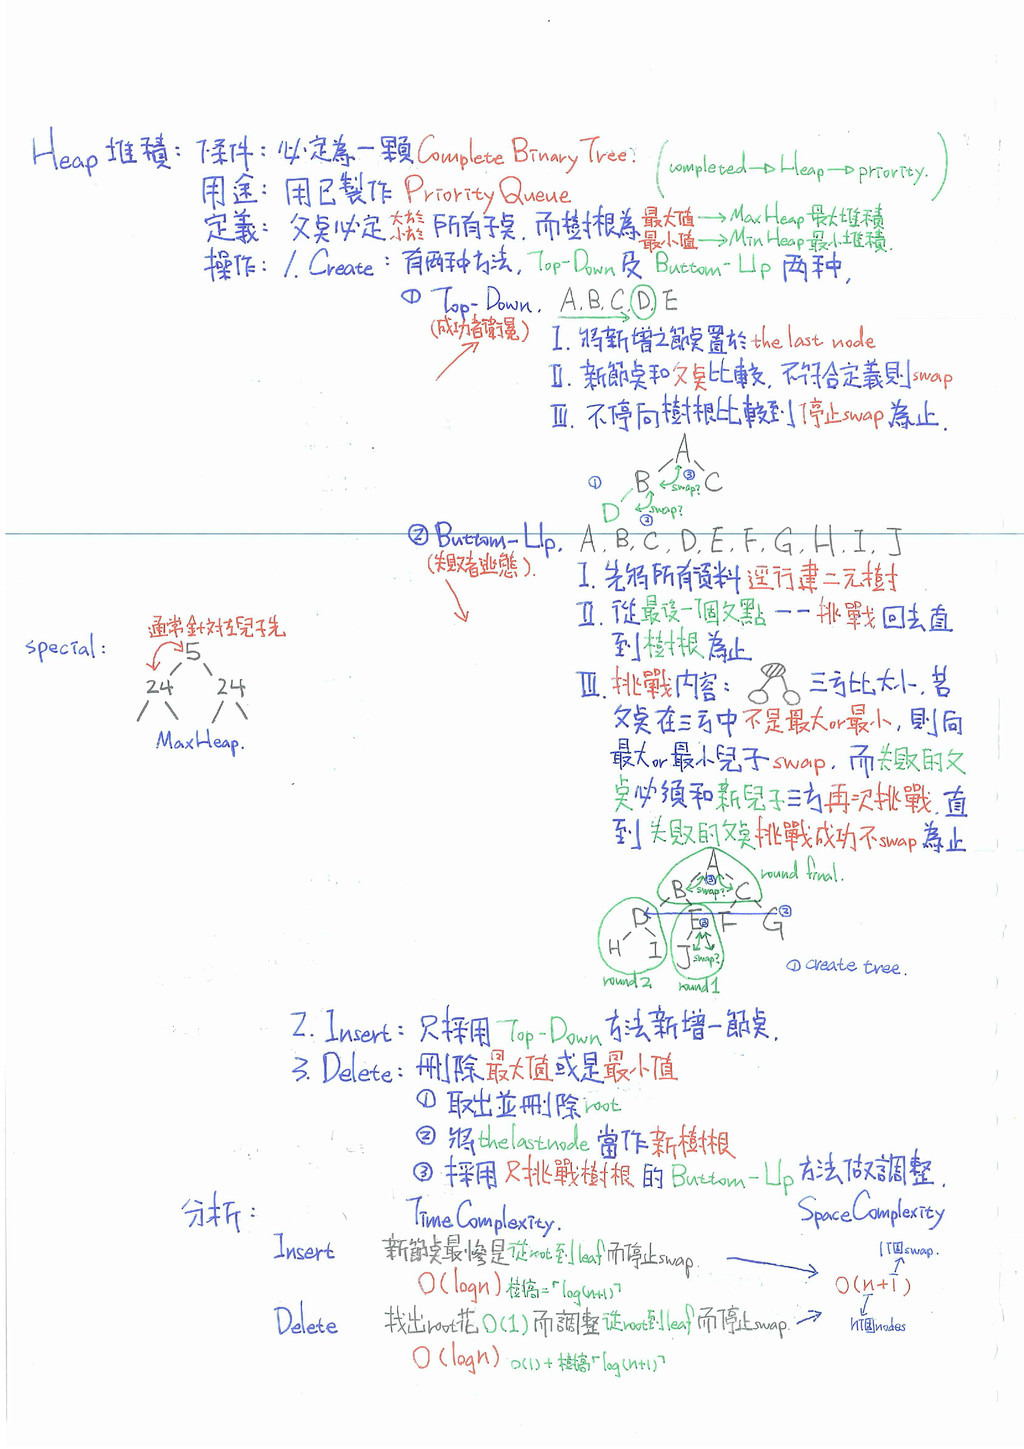 Heap 堆積: 條件: 必定為一顆 Complete Binary Tree. (completed→Heap→priority.)
用途: 用已製作 Priority Queue
定義: 父點必定 大於 小於 所有子點, 而樹根為 最大值→MaxHeap 最大堆積
最小值→MinHeap 最小堆積.
操作: 1. Create: 有兩种方法, Top-Down 及 Buttom-Up 兩种,
① Top-Down. A, B, C, D, E
(成功者)
I. 將新增之節點置於 the last node
II. 新節點和父點比較, 不符合定義則 swap
III. 不停向樹根比較到停止 swap 為止.
A
① B ③ swap? C
D swap?
②
② Buttom-Up. A, B, C, D, E, F, G, H, I, J
(失敗者逃態).
I. 先將所有資料逕行建二元樹
special: 通常針對左兒子先
II. 從最後一個父點一一挑戰回去直
5
到樹根為止
24 24
III. 挑戰內容: 三方比大小, 若
MaxHeap.
父點在三方中不是最大or最小, 則向
最大or最小兒子 swap. 而失敗的父
點必須和新兒子三方再次挑戰, 直
到失敗的父點挑戰成功不swap為止
A
B ③ swap? C round final.
D E ③ F G ②
H I J swap?
① create tree.
round2 round1
2. Insert: 只採用 Top-Down 方法新增一節點.
3. Delete: 刪除最大值或是最小值
① 取出並刪除 root
② 將 the last node 當作新樹根
③ 採用只挑戰樹根的 Buttom-Up 方法做調整.
分析: Time Complexity. Space Complexity
Insert 新節點最慘是從root到leaf而停止swap. 1個swap.
O(logn) 樹高=⌈log(n+1)⌉ O(n+1)
Delete 找出root花O(1)而調整從root到leaf而停止swap. n個nodes
O(logn) O(1)+樹高⌈log(n+1)⌉